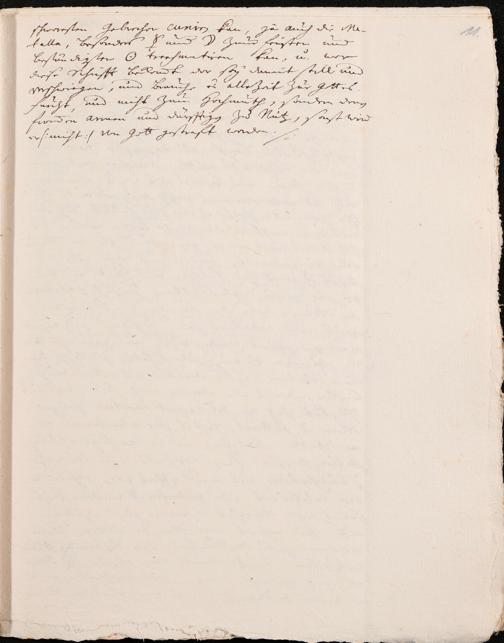 11.
schwersten Gebrechen curiren kan, ja auch die Me-
talla, besonders ☿ und ☽ zum feinsten und
beständigsten ☉ transmutiren kan, u. wer
diese Schrifft bekommt der sey damit still und
verschwiegen, und brauche es allezeit zur Gottes
furcht, und nicht zum Hochmuth, sondern dem
armen und dürfftigen zu Nutz, sonst wird
er nicht von Gott gestraft werden.